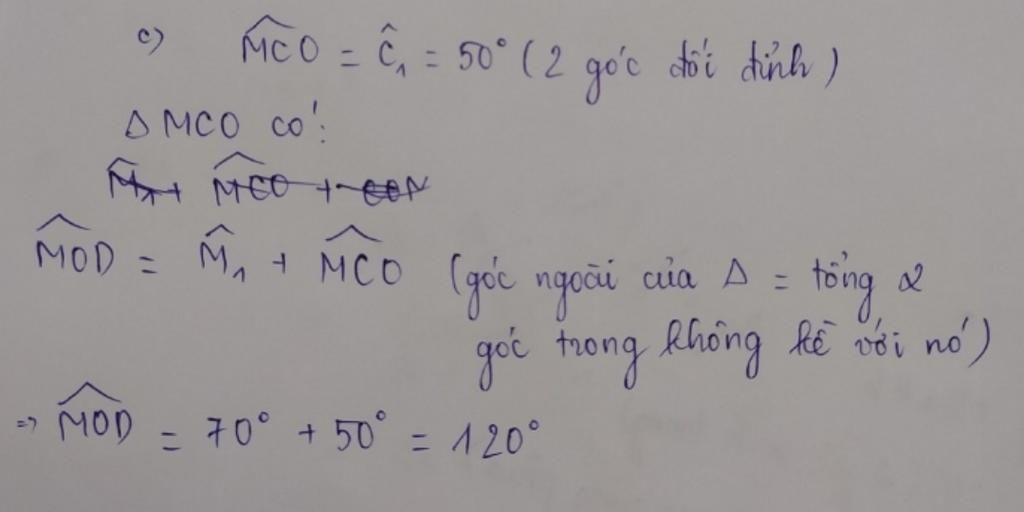 c) $\widehat{MCO} = \hat{C}_1 = 50°$ (2 góc đối đỉnh)
Δ MCO có:
$\widehat{MOD} = \hat{M}_1 + \widehat{MCO}$ (góc ngoài của Δ = tổng 2
góc trong không kề với nó)
=> $\widehat{MOD} = 70° + 50° = 120°$